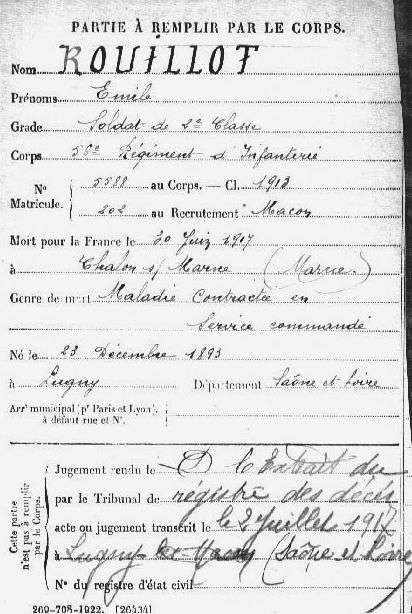 PARTIE À REMPLIR PAR LE CORPS.
Nom ROUILLOT
Prénoms Emile
Grade Soldat de 2e Classe
Corps 56e Régiment d'Infanterie
N° Matricule. 5588 au Corps. — Cl. 1913
202 au Recrutement Macon
Mort pour la France le 30 Juin 1917
à Chalon s/ Marne (Marne)
Genre de mort Maladie Contractée en
Service commandé
Né le 23 Décembre 1893
à Lugny Département Saône et Loire
Arrt municipal (pr Paris et Lyon),
à défaut rue et N°.
Cette partie n'est pas à remplir par le Corps.
Jugement rendu le l'Extrait du
par le Tribunal de régistre des décès
acte ou jugement transcrit le le 2 Juillet 1917
à Lugny-les-Macon (Saône et Loire)
N° du registre d'état civil
269-708-1922. [26434]